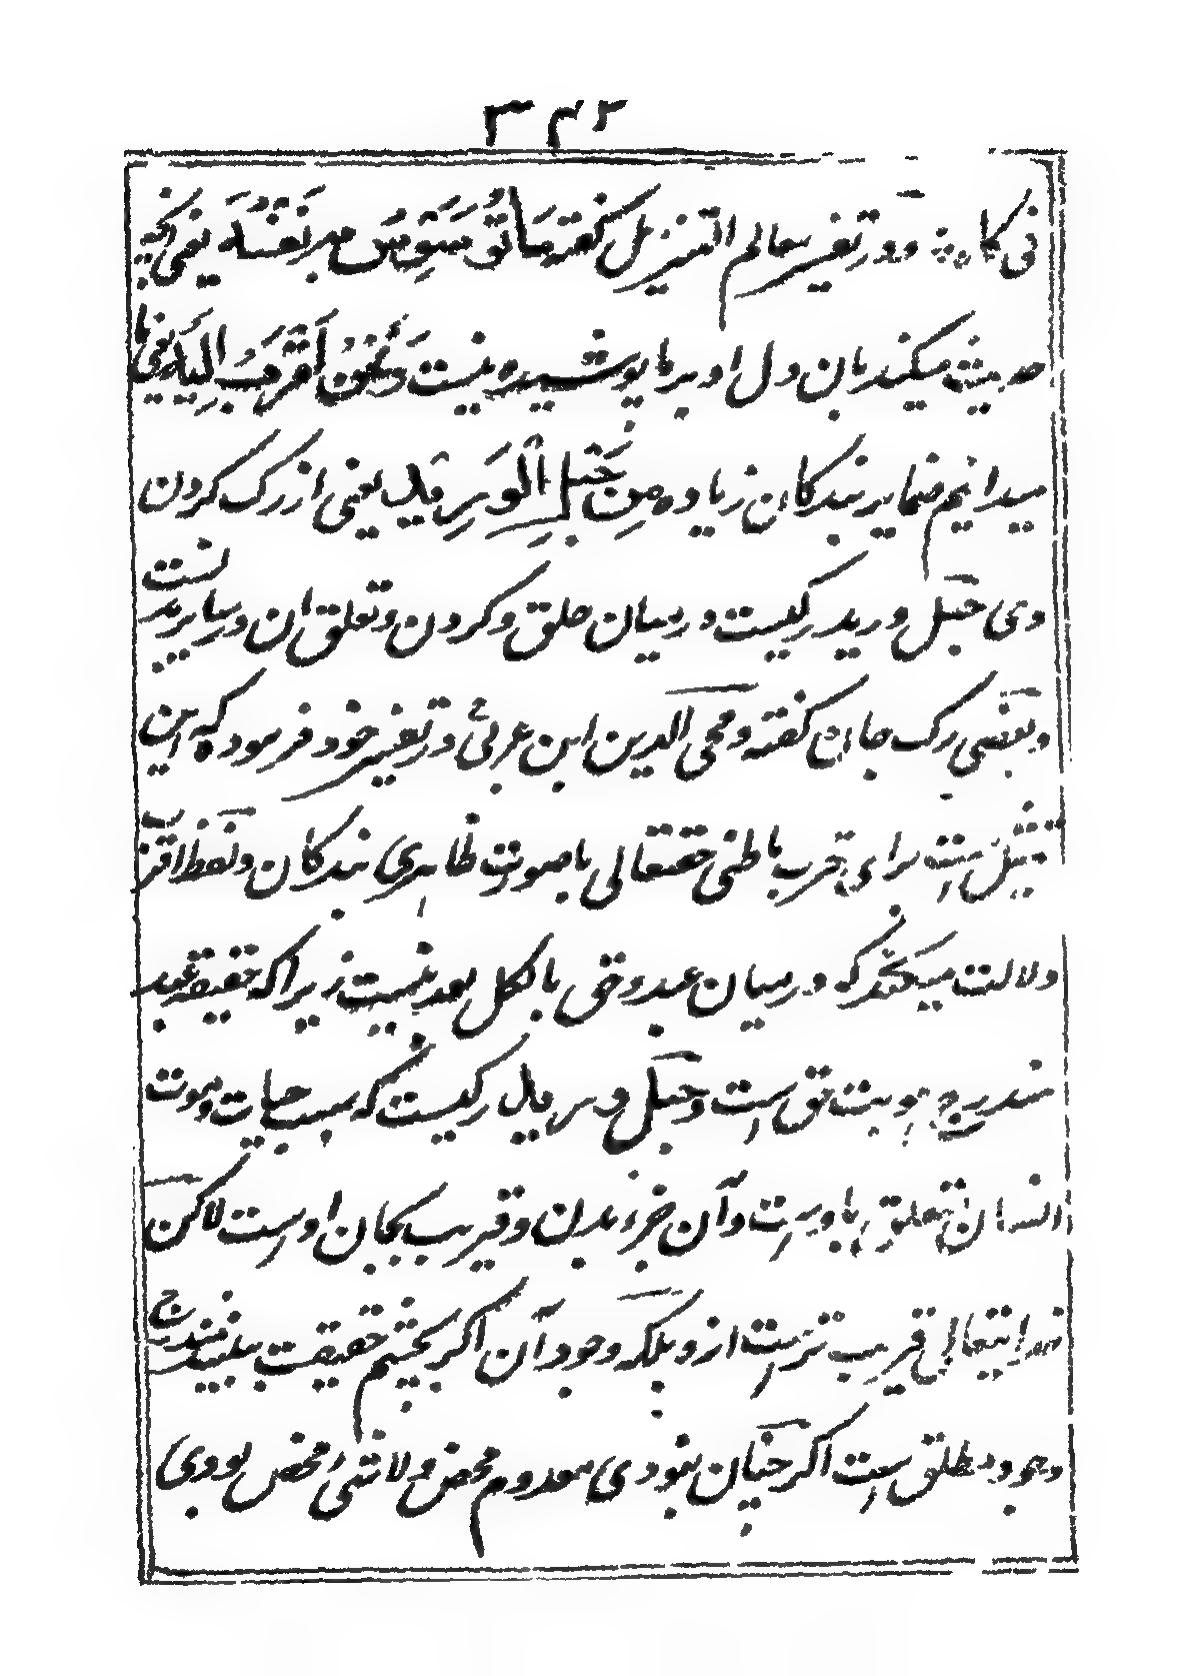 ۳۴۳
فی کل و در تفسیر معالم التنزیل گفته ما توسوس به نفسه یعنی آنچه
حدیث میکند بان دل او برما پوشیده نیست و نحن اقرب الیه یعنی ما
میدانیم ضمایر بندگان زیاده من حبل الورید یعنی از رگ گردن
وی حبل ورید رگیست درمیان حلق و گردن و تعلق ان دریا بدنست
و بعضی رگ جان گفته و محی الدین ابن عربی در تفسیر خود فرموده که این
تمثیل است برای قرب باطنی حقتعالی با صورت ظاهری بندگان و لفظ اقرب
دلالت میکند که درمیان عبد و حق بالکل بعد نیست زیرا که حقیقة عبد
مندرج هویت حق است و حبل ورید رگیست که سبب حیات و موت
انسان متعلق باوست و آن جزء بدن و قریب بجان اوست لاکن
خدایتعالی قریب تر است ازو بلکه وجود آن اگر بچشم حقیقت بینند
وجود مطلق است اگر چنان نبودی معدوم محض و لاشئ محض بودی